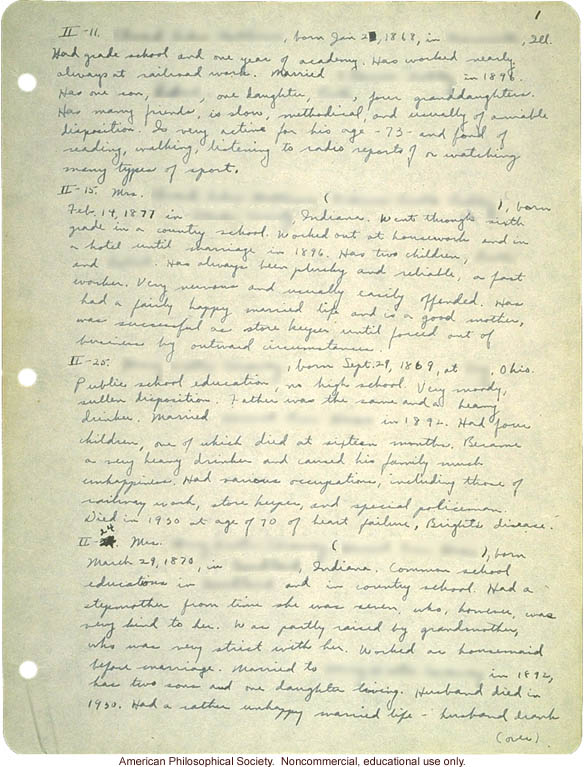 1
II-11. , born Jan 2 , 1868, in , Ill.
Had grade school and one year of academy. Has worked nearly
always at railroad work. Married in 1896.
Has one son, , one daughter, , four granddaughters.
Has many friends, is slow, methodical, and usually of amiable
disposition. Is very active for his age - 73 - and fond of
reading, walking, listening to radio reports of or watching
many types of sport.
II-15. Mrs. ( ), born
Feb. 14, 1877 in , Indiana. Went through sixth
grade in a country school. Worked out at housework and in
a hotel until marriage in 1896. Has two children,
and . Has always been and reliable, a fast
worker. Very nervous and usually easily offended. Has
had a fairly happy married life and is a good mother,
was successful as store keeper until forced out of
business by outward circumstances.
II-25. , born Sept. 29, 1869, at , Ohio.
Public school education, no high school. Very moody,
sullen disposition. Father was the same and a heavy
drinker. Married in 1892. Had four
children, one of which died at sixteen months. Became
a very heavy drinker and caused his family much
unhappiness. Had various occupations, including those of
railway work, store keeper, and special policeman.
Died in 1930 at age of 70 of heart failure, Brights disease.
24
II- . Mrs. ( ), born
March 29, 1870, in , Indiana. Common school
educations in and in country school. Had a
stepmother from time she was seven, who, however, was
very kind to her. Was partly raised by grandmother,
who was very strict with her. Worked as housemaid
before marriage. Married to in 1892,
has two sons and one daughter living. Husband died in
1930. Had a rather unhappy married life - husband drank
(over)
American Philosophical Society. Noncommercial, educational use only.